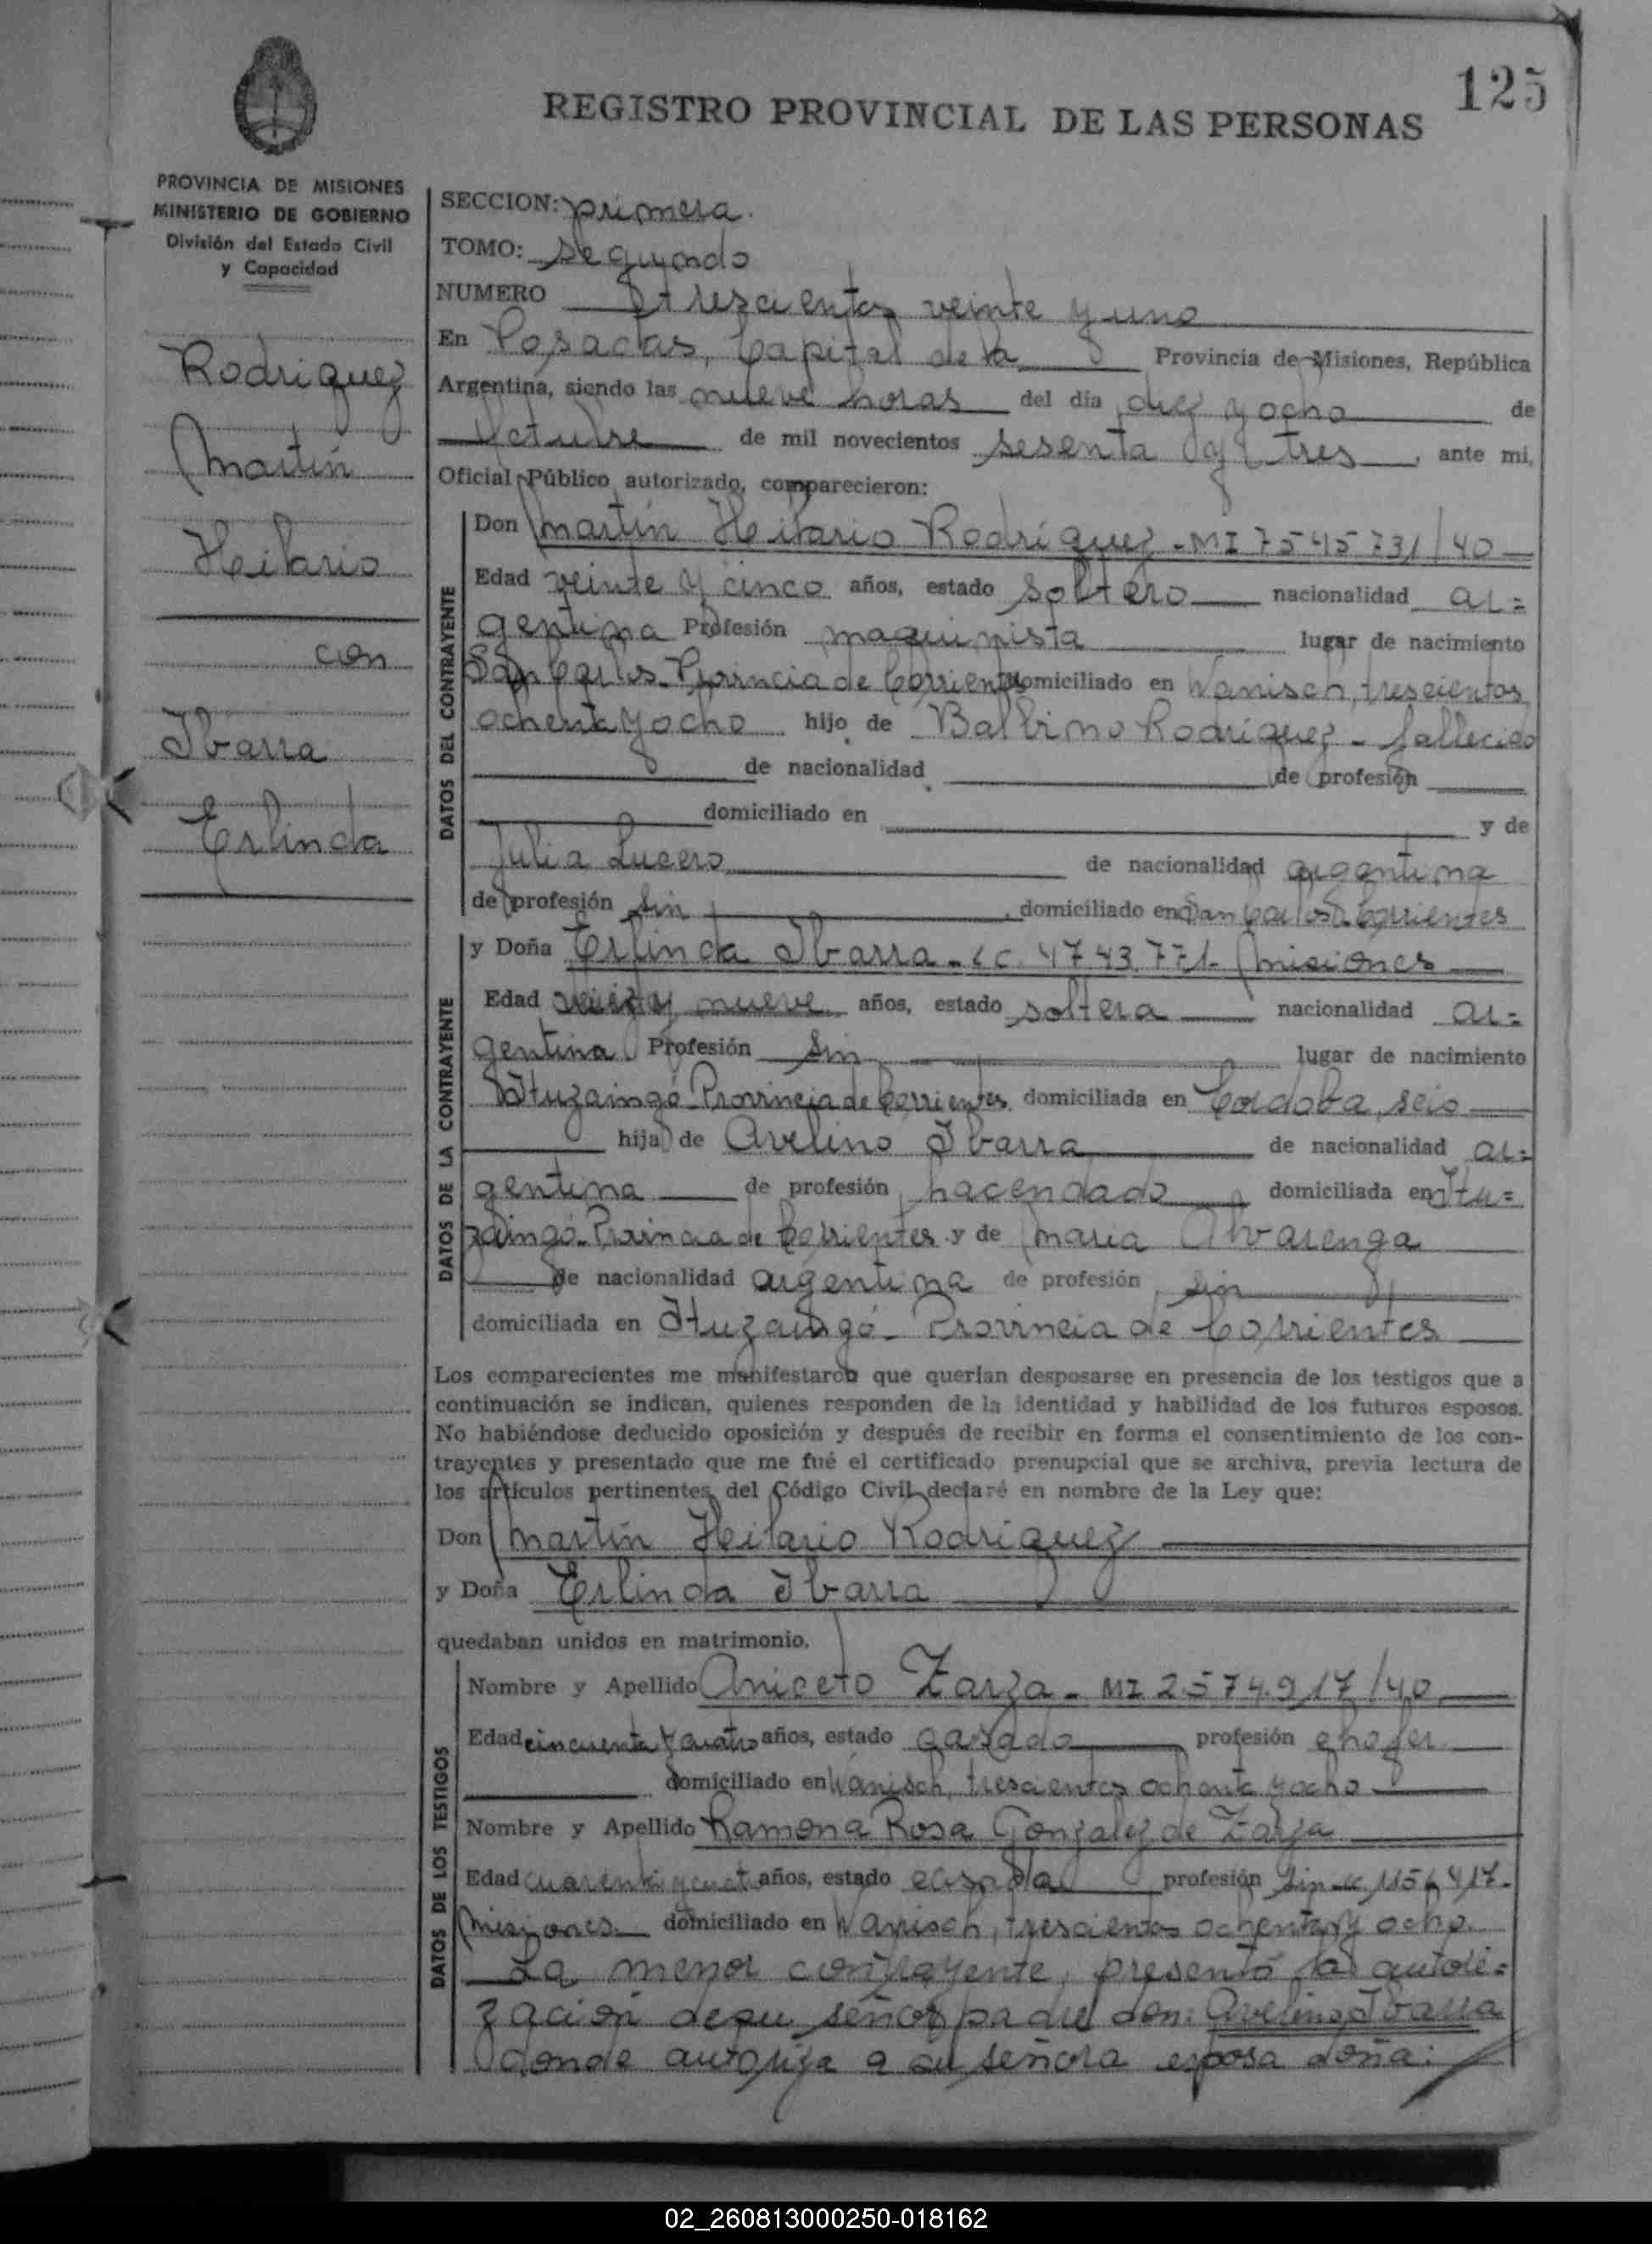 125
REGISTRO PROVINCIAL DE LAS PERSONAS
PROVINCIA DE MISIONES
MINISTERIO DE GOBIERNO
División del Estado Civil
y Capacidad
Rodriguez
Martín
Hilario
con
Ibarra
Erlinda
SECCION: primera.
TOMO: segundo
NUMERO trescientos veinte y uno
En Posadas, Capital de la Provincia de Misiones, República
Argentina, siendo las nueve horas del día diez y ocho de
Octubre de mil novecientos sesenta y tres, ante mi,
Oficial Público autorizado, comparecieron:
DATOS DEL CONTRAYENTE
Don Martín Hilario Rodríguez - MI 7545731/40
Edad veinte y cinco años, estado soltero nacionalidad ar=
gentina Profesión maquinista lugar de nacimiento
San Carlos - Provincia de Corrientes domiciliado en Wanisch, trescientos
ochenta y ocho hijo de Balbino Rodríguez - fallecido
de nacionalidad de profesión
domiciliado en y de
Julia Lucero de nacionalidad argentina
de profesión sin, domiciliado en San Carlos - Corrientes
DATOS DE LA CONTRAYENTE
y Doña Erlinda Ibarra - LC. 4743771 - Misiones
Edad y nueve años, estado soltera nacionalidad ar=
gentina Profesión sin lugar de nacimiento
Ituzaingó - Provincia de Corrientes domiciliada en Cordoba, seis
hija de Avelino Ibarra de nacionalidad ar=
gentina de profesión hacendado domiciliada en Itu=
zaingó - Provincia de Corrientes y de María Alvarenga
de nacionalidad argentina de profesión sin
domiciliada en Ituzaingó - Provincia de Corrientes
Los comparecientes me manifestaron que querían desposarse en presencia de los testigos que a
continuación se indican, quienes responden de la identidad y habilidad de los futuros esposos.
No habiéndose deducido oposición y después de recibir en forma el consentimiento de los con-
trayentes y presentado que me fué el certificado prenupcial que se archiva, previa lectura de
los artículos pertinentes del Código Civil declaré en nombre de la Ley que:
Don Martín Hilario Rodríguez
y Doña Erlinda Ibarra
quedaban unidos en matrimonio.
DATOS DE LOS TESTIGOS
Nombre y Apellido Aniceto Zarza - MI 2.574.917/40
Edad cincuenta y cuatro años, estado casado profesión chofer
domiciliado en Wanisch, trescientos ochenta y ocho
Nombre y Apellido Ramona Rosa Gonzalez de Zarza
Edad cuarenta y cuatro años, estado casada profesión sin
Misiones domiciliado en Wanisch, trescientos ochenta y ocho
La menor contrayente, presentó la autori=
zación de su señor padre don: Avelino Ibarra
donde autoriza a su señora esposa doña:
02_260813000250-018162